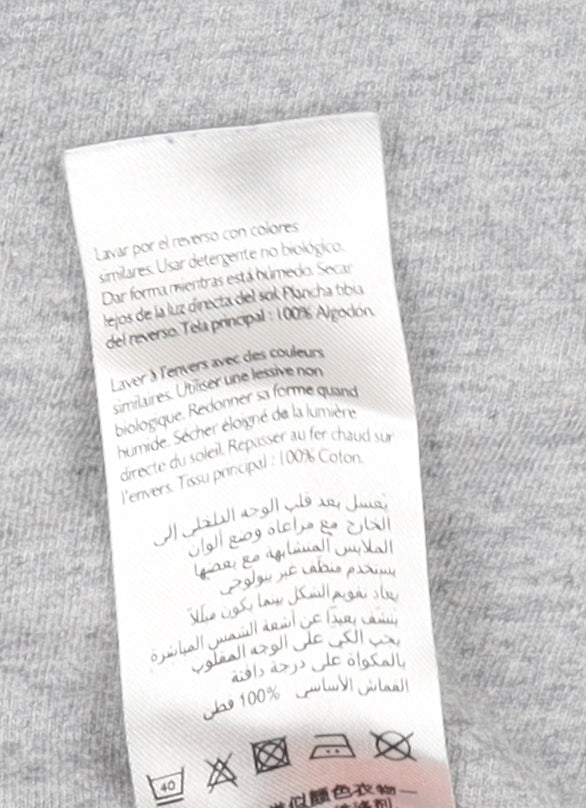 Lavar por el reverso con colores
similares. Usar detergente no biológico.
Dar forma mientras está húmedo. Secar
lejos de la luz directa del sol. Plancha tibia
del reverso. Tela principal : 100% Algodón.
Laver à l'envers avec des couleurs
similaires. Utiliser une lessive non
biologique. Redonner sa forme quand
humide. Sécher éloigné de la lumière
directe du soleil. Repasser au fer chaud sur
l'envers. Tissu principal : 100% Coton.
يغسل بعد قلب الوجه الداخلي إلى
الخارج مع مراعاة وضع ألوان
الملابس المتشابهة مع بعضها
يستخدم منظف غير بيولوجي
يعاد تقويم الشكل بينما يكون مبللاً
ينشف بعيداً عن أشعة الشمس المباشرة
يجب الكي على الوجه المقلوب
بالمكواة على درجة دافئة
القماش الأساسي 100% قطن
40
類似顏色衣物一